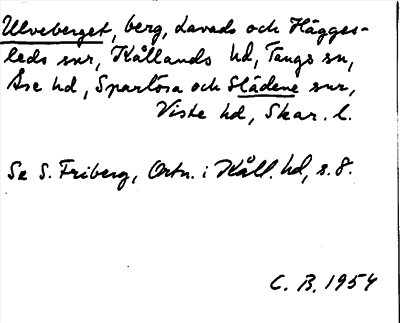 Ulveberget, berg, Lavads och Hägges-
leds snr, Kållands hd, Tangs sn,
Åse hd, Sparlösa och Slädene snr,
Viste hd, Skar. l.
Se S. Friberg, Ortn. i Kåll. hd, s. 8.
C. B. 1954